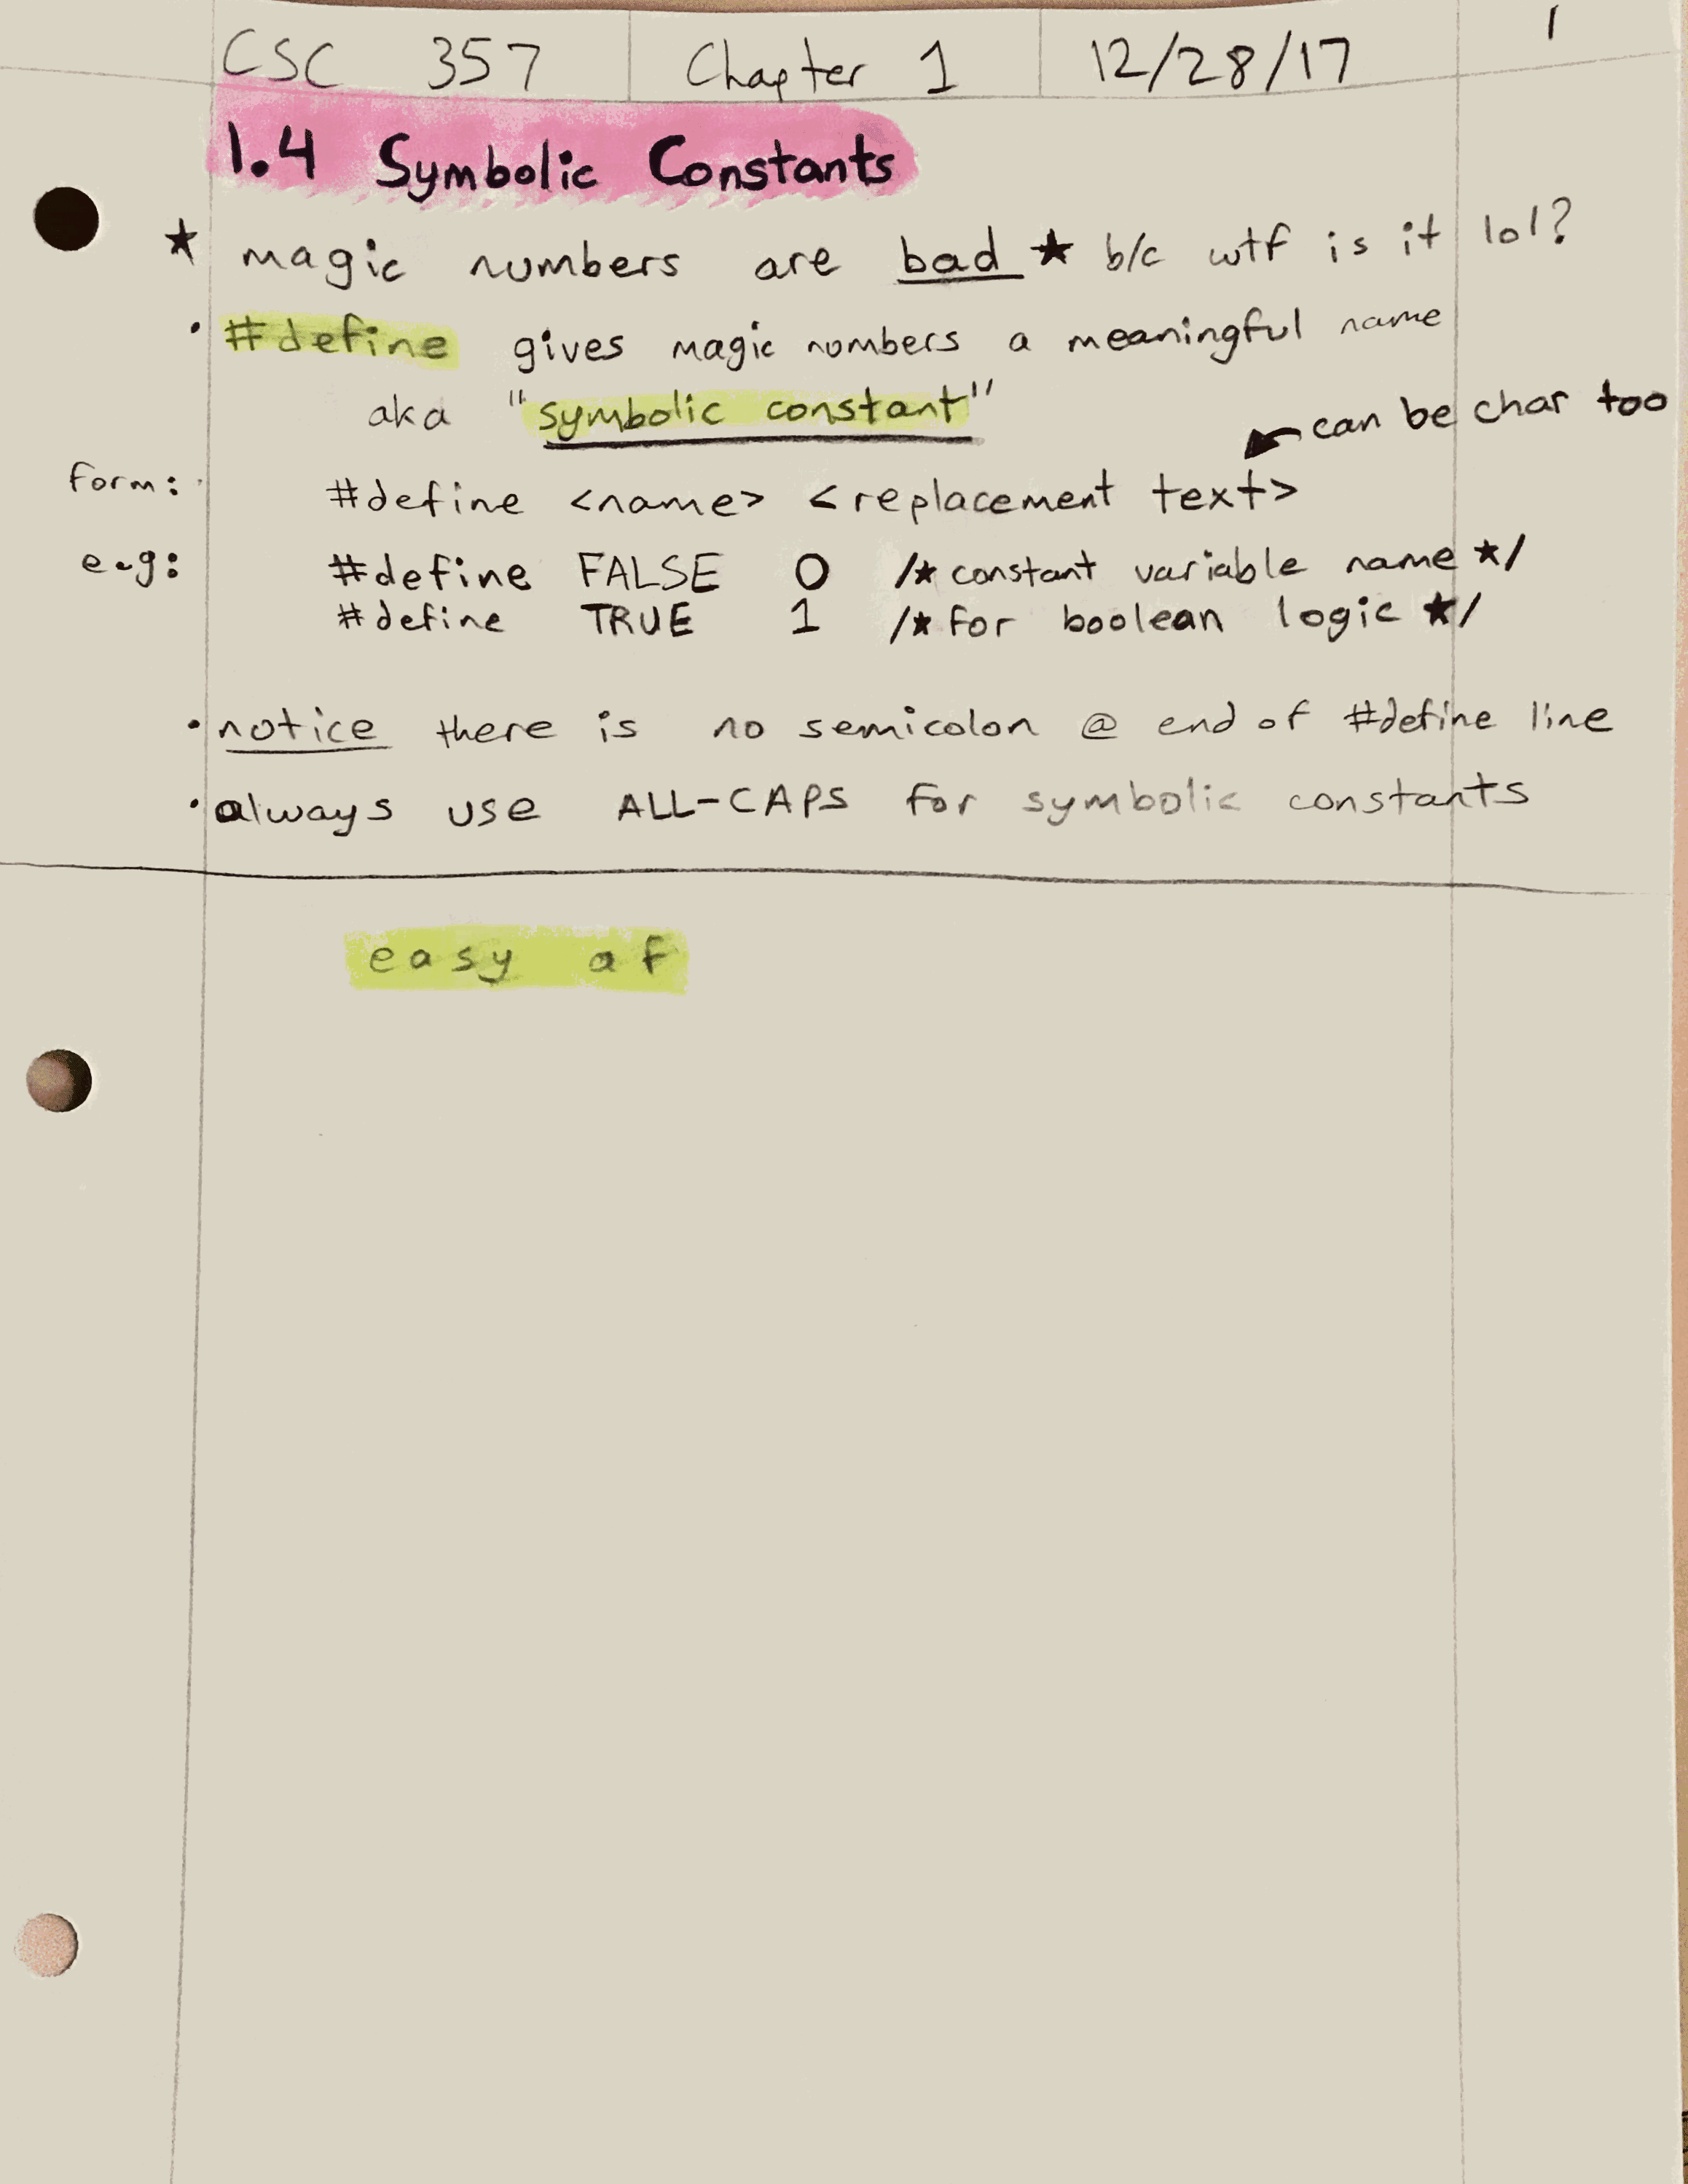 CSC 357 Chapter 1 12/28/17 1
1.4 Symbolic Constants
★ magic numbers are bad ★ b/c wtf is it lol?
• #define gives magic numbers a meaningful name
aka "symbolic constant"
can be char too
form: #define <name> <replacement text>
e.g: #define FALSE 0 /* constant variable name */
#define TRUE 1 /* for boolean logic */
• notice there is no semicolon @ end of #define line
• always use ALL-CAPS for symbolic constants
easy af